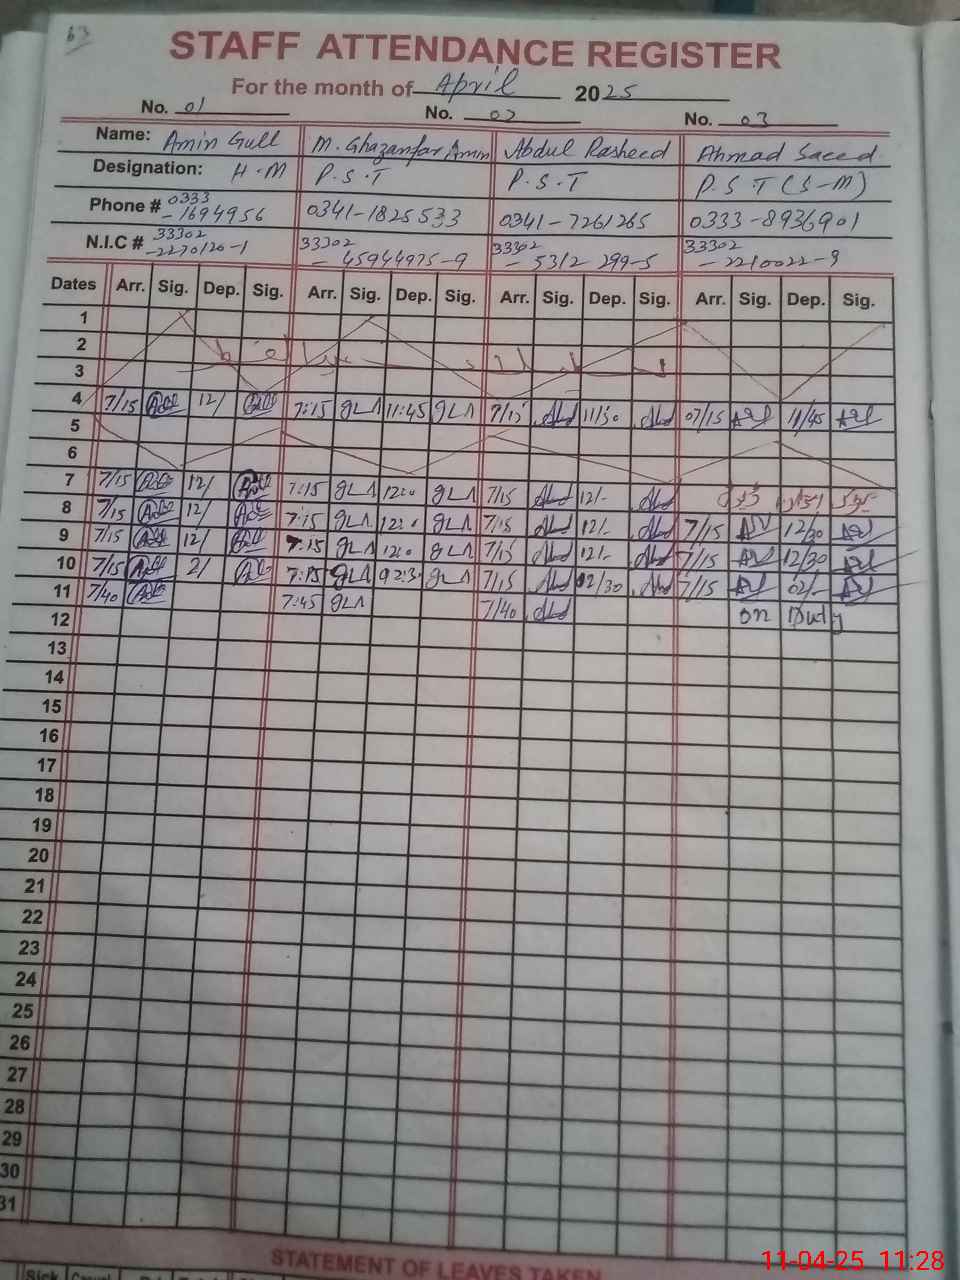 63
STAFF ATTENDANCE REGISTER
For the month of April 2025
No. 01 No. 02 No. 03
Name: Amin Gull M. Ghazanfar Amin Abdul Rasheed Ahmad Saeed
Designation: H.M P.S.T P.S.T P.S.T (S-M)
Phone # 0333-1694956 0341-1825533 0341-7261265 0333-8936901
N.I.C # 33302-2270120-1 33302-45944975-9 33302-5312299-5 33302-2210022-9
Dates Arr. Sig. Dep. Sig. Arr. Sig. Dep. Sig. Arr. Sig. Dep. Sig. Arr. Sig. Dep. Sig.
1
2
عید الفطر
3
4 7/15 12/ 7:15 11:45 7/15 11/30 07/15 11/45
5
6
7 7/15 12/ 7:15 12:0 7/15 12/-
8 7/15 12/ 7:15 12:0 7/15 12/- 7/15 12/30
9 7/15 12/ 7:15 12:0 7/15 12/- 7/15 12/30
10 7/15 2/ 7:15 02:3 7/15 02/30 7/15 02/-
11 7/40 7:45 7/40 on Duty
12
13
14
15
16
17
18
19
20
21
22
23
24
25
26
27
28
29
30
31
STATEMENT OF LEAVES TAKEN
Sick Casual
11-04-25 11:28